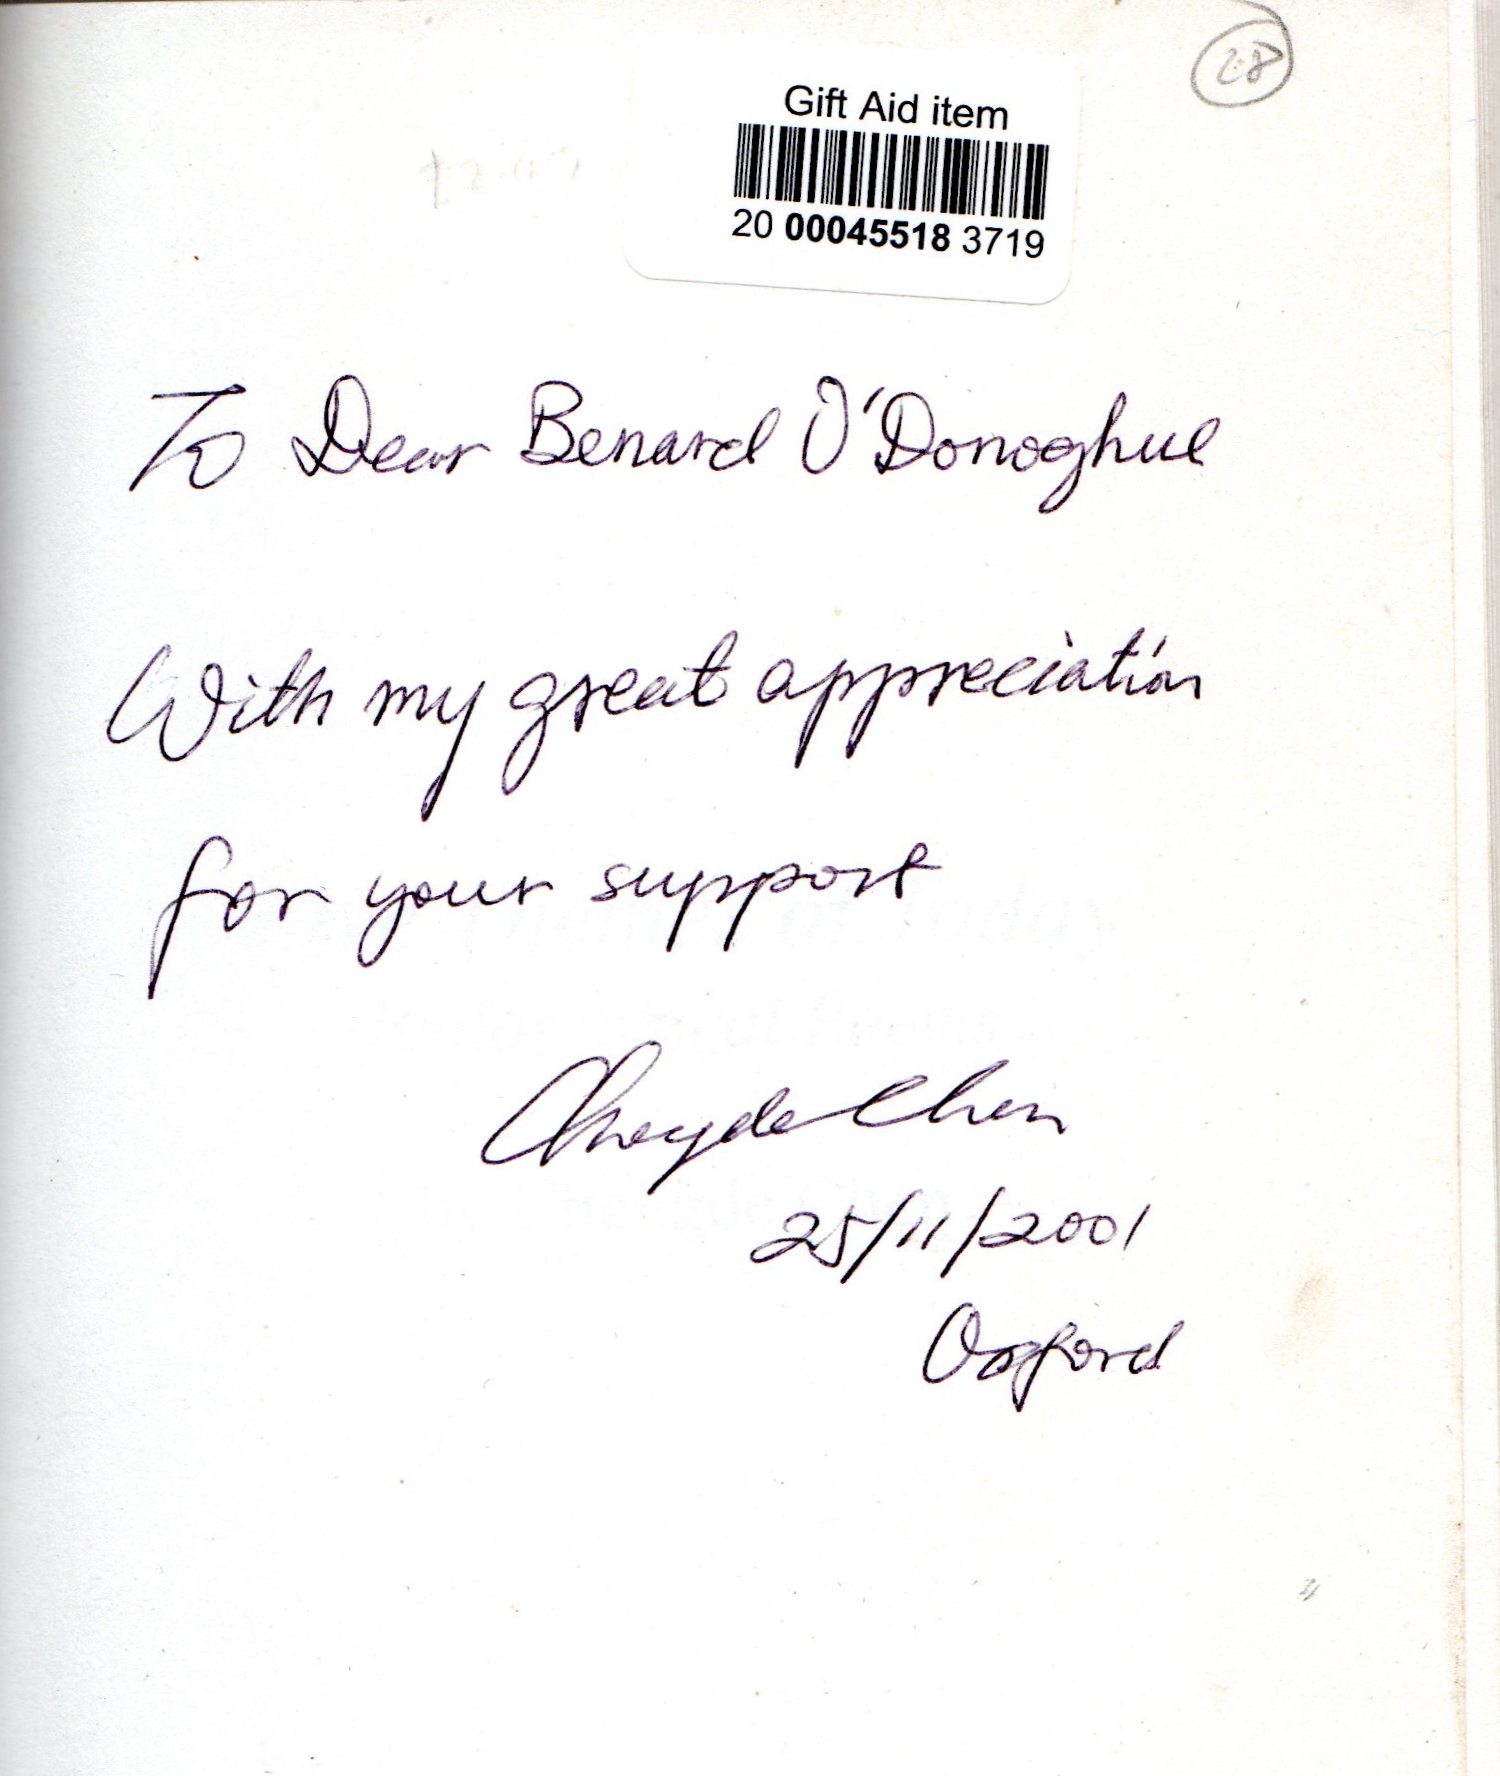 28
Gift Aid item
20 00045518 3719
To Dear Benard O'Donoghue
With my great appreciation
for your support
Chengde Chen
25/11/2001
Oxford